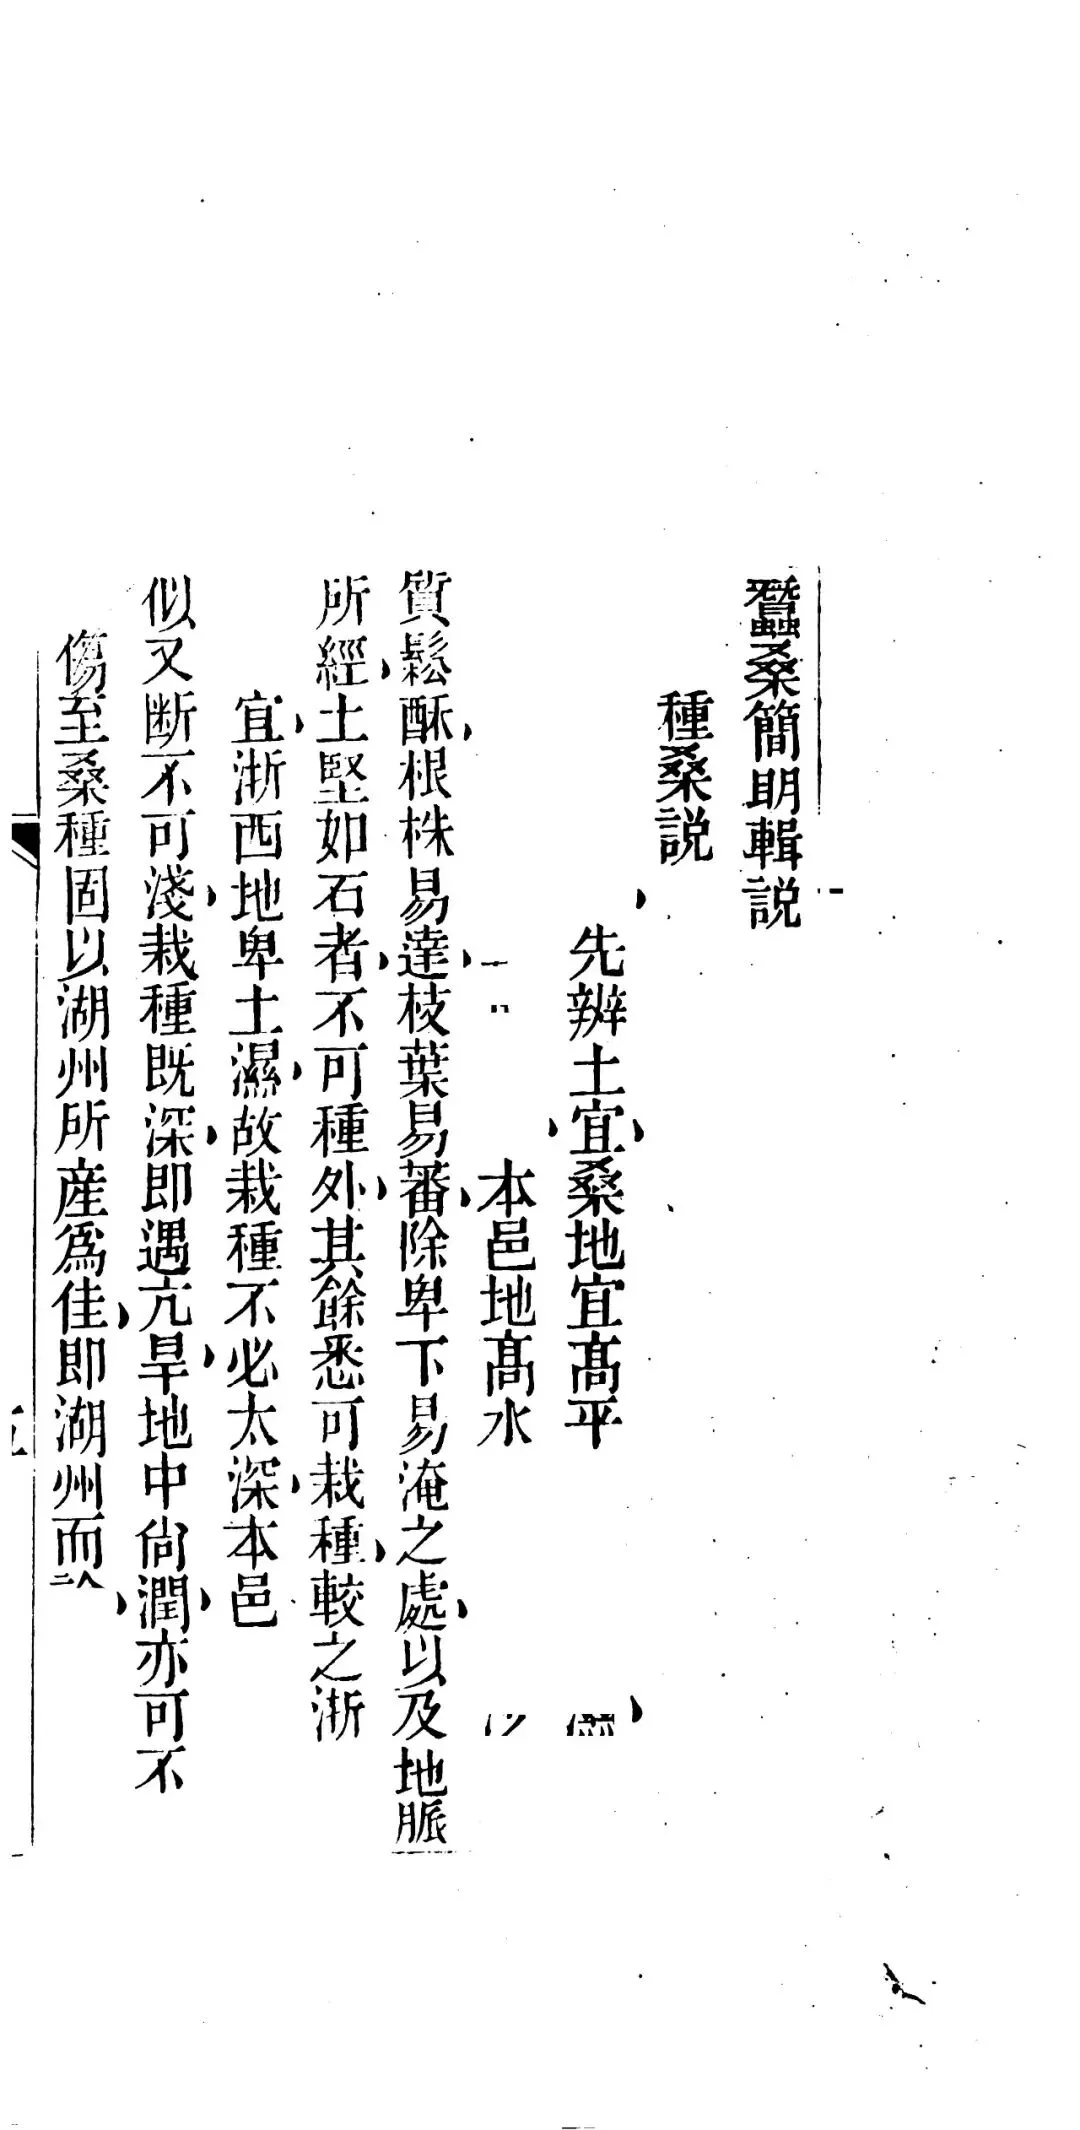 蠶桑簡明輯説
種桑説
先辨土宜桑地宜髙平
本邑地髙水
質鬆酥根株易達枝葉易蕃除卑下易淹之處以及地脈
所經土堅如石者不可種外其餘悉可栽種較之浙
宜浙西地卑土濕故栽種不必太深本邑
似又断不可淺栽種既深即遇亢旱地中尙潤亦可不
傷至桑種固以湖州所産爲佳即湖州而